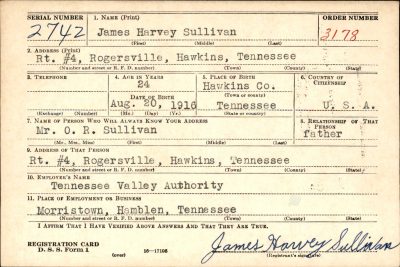 SERIAL NUMBER 1. NAME (Print) ORDER NUMBER
2742 James Harvey Sullivan 3178
(First) (Middle) (Last)
2. ADDRESS (Print)
Rt. #4, Rogersville, Hawkins, Tennessee
(Number and street or R. F. D. number) (Town) (County) (State)
3. TELEPHONE 4. AGE IN YEARS 5. PLACE OF BIRTH 6. COUNTRY OF CITIZENSHIP
24 Hawkins Co.
DATE OF BIRTH (Town or county)
Aug. 20, 1916 Tennessee U. S. A.
(Exchange) (Number) (Mo.) (Day) (Yr.) (State or country)
7. NAME OF PERSON WHO WILL ALWAYS KNOW YOUR ADDRESS 8. RELATIONSHIP OF THAT PERSON
Mr. O. R. Sullivan father
(Mr., Mrs., Miss) (First) (Middle) (Last)
9. ADDRESS OF THAT PERSON
Rt. #4, Rogersville, Hawkins, Tennessee
(Number and street or R. F. D. number) (Town) (County) (State)
10. EMPLOYER'S NAME
Tennessee Valley Authority
11. PLACE OF EMPLOYMENT OR BUSINESS
Morristown, Hamblen, Tennessee
(Number and street or R. F. D. number) (Town) (County) (State)
I AFFIRM THAT I HAVE VERIFIED ABOVE ANSWERS AND THAT THEY ARE TRUE.
REGISTRATION CARD
D. S. S. Form 1 16—17105 James Harvey Sullivan
(Registrant's signature)